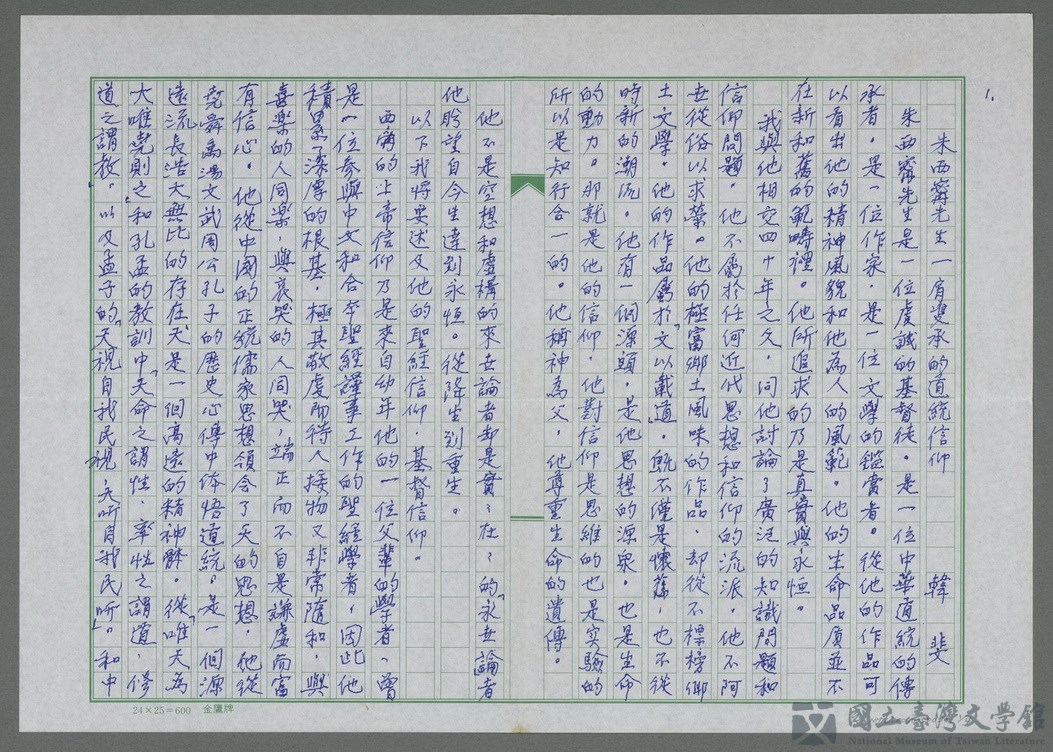 1.
朱西甯先生一肩雙承的道統信仰 韓斐
朱西甯先生是一位虔誠的基督徒。是一位中華道統的傳
承者。是一位作家，是一位文學的鑑賞者。從他的作品可
以看出他的精神風貌和他為人的風範。他的生命品質並不
在新和舊的範疇裡。他所追求的乃是真實與永恒。
我與他相交四十年之久，同他討論了廣泛的知識問題和
信仰問題。他不屬於任何近代思想和信仰的流派。他不阿
世從俗以求榮。他的極富鄉土風味的作品，却從不標榜鄉
土文學。他的作品屬於「文以載道」，既不僅是懷舊，也不從
時新的潮流。他有一個源頭，是他思想的源泉。也是生命
的動力。那就是他的信仰，他對信仰是思維的也是实驗的
所以是知行合一的。他稱神為父，他尊重生命的遺傳。
他不是空想和虛構的來世論者却是實實在在的「永世論」者
他盼望自今生達到永恒。從降生到重生。
以下我將要述及他的聖經信仰，基督信仰。
西甯的上帝信仰乃是來自幼年他的一位父輩的學者，曾
是一位參與中文和合本聖經譯事工作的聖經學者，因此他
積累了深厚的根基，極其敬虔而待人接物又非常隨和，與
喜樂的人同樂，與哀哭的人同哭，端正而不自是謙虛而富
有信心。他從中國的正統儒家思想領會了天的思想，他從
堯舜禹湯文武周公孔子的歷史心傳中体悟道統。是一個源
遠流長浩大無比的存在「天」是一個高遠的精神體。從「唯天為
大唯堯則之」和孔孟的教訓中「天命之謂性，率性之謂道，修
道之謂教。」以及孟子的「天視自我民視，天听自我民听」。和中
24×25=600 金鷹牌
國立臺灣文學館
National Museum of Taiwan Literature